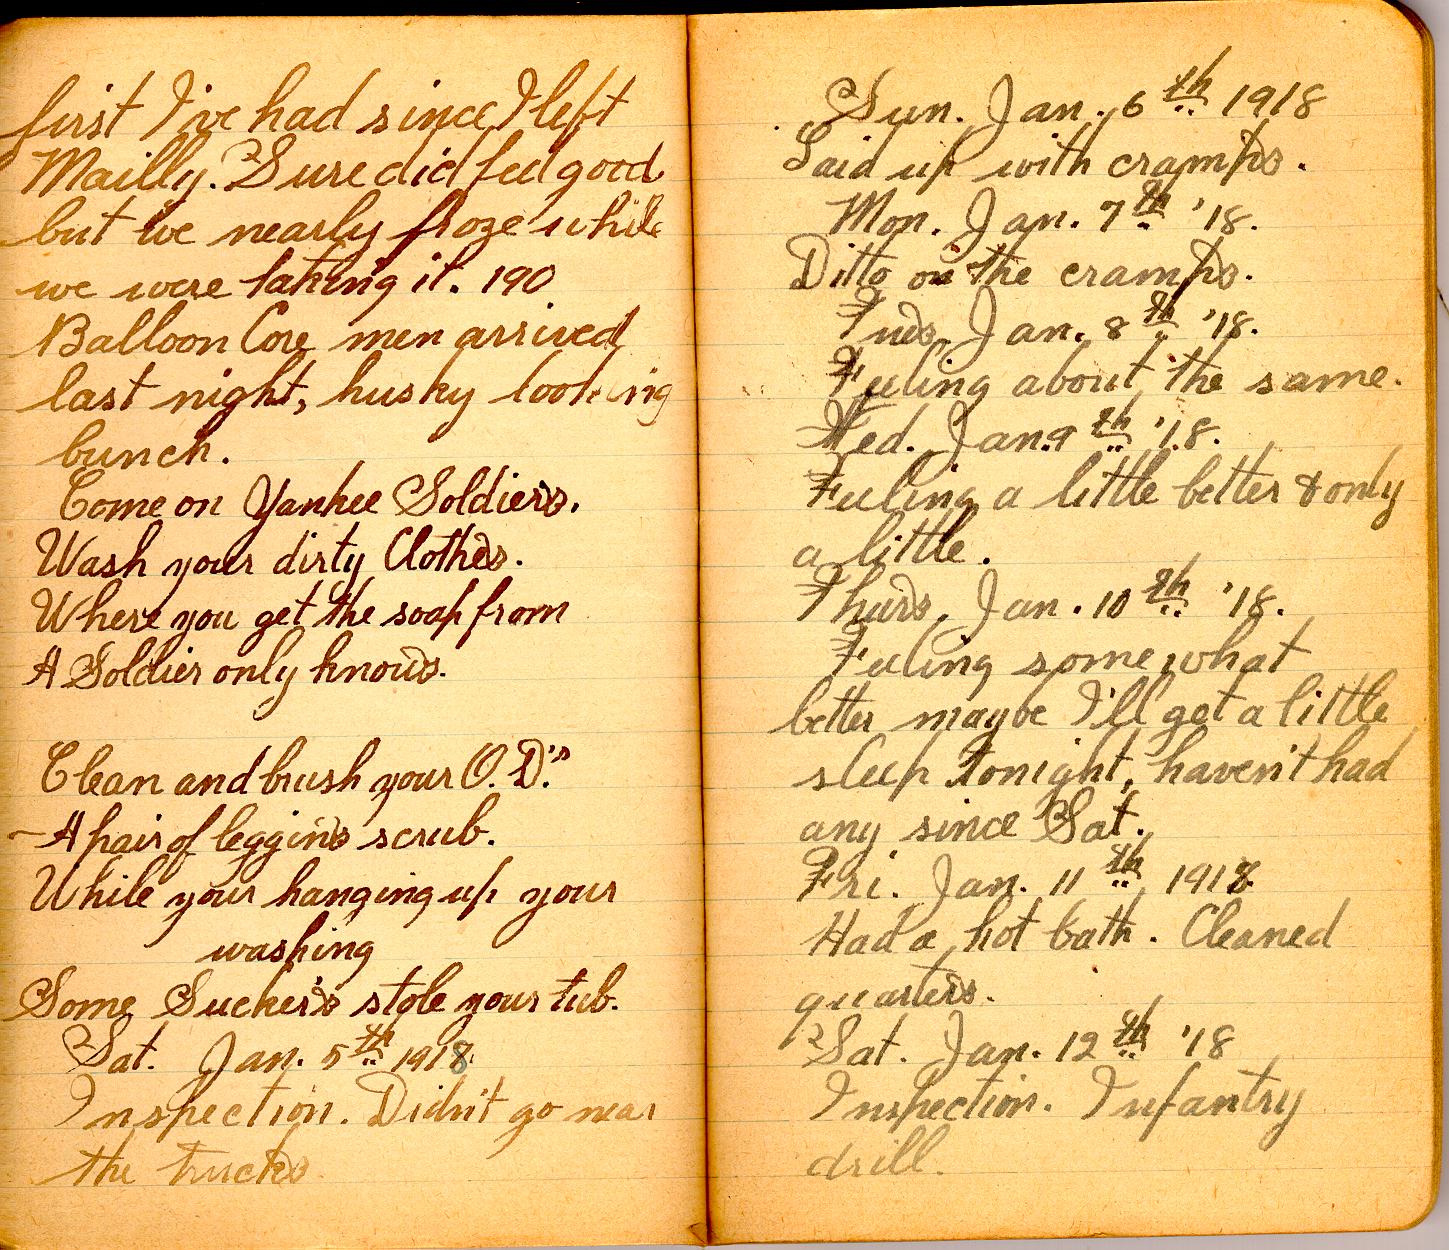 first I've had since I left
Mailly. Sure did feel good
but we nearly froze while
we were taking it. 190
Balloon Core men arrived
last night, husky looking
bunch.
Come on Yankee Soldiers.
Wash your dirty Clothes.
Where you get the soap from
A Soldier only knows.
Clean and brush your O.D.'s
A pair of leggins scrub.
While your hanging up your
washing
Some Sucker's stole your tub.
Sat. Jan. 5th 1918
Inspection. Didn't go near
the trucks
Sun. Jan. 6th 1918
Laid up with cramps.
Mon. Jan. 7th '18.
Ditto on the cramps.
Tues. Jan. 8th '18.
Feeling about the same.
Wed. Jan. 9th '18.
Feeling a little better & only
a little.
Thurs. Jan. 10th '18.
Feeling somewhat
better maybe I'll get a little
sleep tonight, haven't had
any since Sat.
Fri. Jan. 11th 1918
Had a hot bath. Cleaned
quarters.
Sat. Jan. 12th '18
Inspection. Infantry
drill.